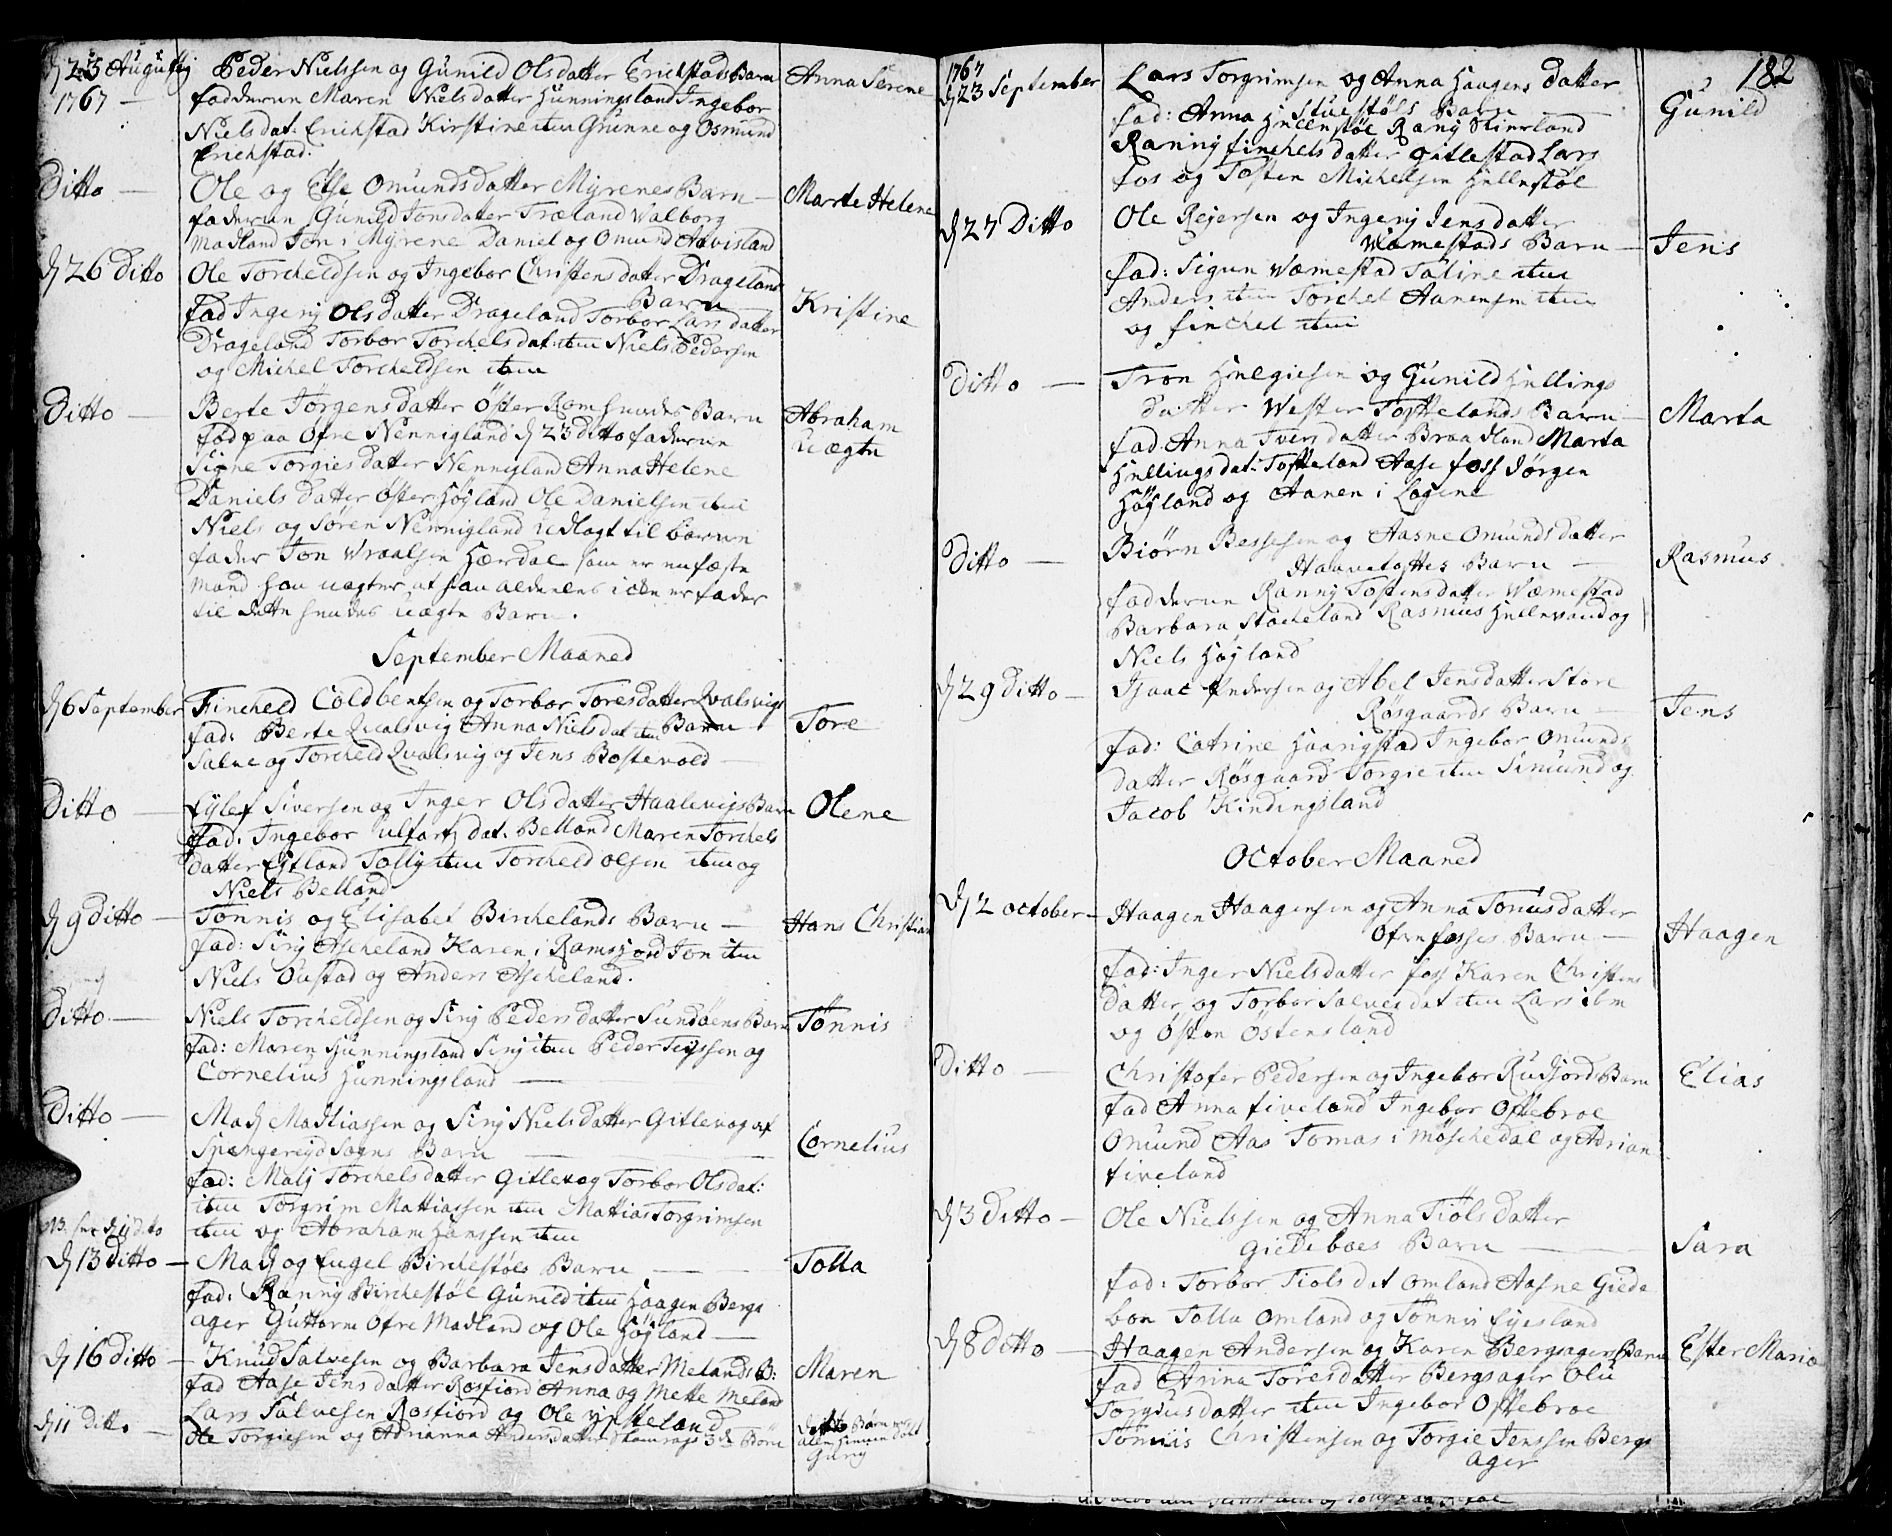 d 23 Augusti
1767 —
Peder Nielssen og Gunild Olsdatter Erichstads Barn
Anna Serene
fadderne Maren Nielsdatter Hunningsland Ingebor
Nielsdat: Erichstad Kirstine item Grunne og Osmund
Erichstad.
Ditto —
Ole og Else Omundsdatter Myrenes Barn —
Marte Helene
fadderne Gunild Jonsdatter Træland Walborg
Madland Jon i Myrene Daniel og Omund Aavisland
d 26 Ditto
Ole Torcheldsen og Ingebor Christensdatter Drageland
Barn
Kristine
fad Ingerj Olsdatter Drageland Torbor Larsdatter
Drageland Torbor Torchelsdat: item Niels Pedersen
og Michel Torcheldsen item
Ditto —
Berte Jørgensdatter Øster Rom hendes Barn
Abraham
uægte
fød paa Øfre Nennigland d 23 ditto fadderne
Signe Torgiesdatter Nennigland Anna Helene
Danielsdatter Øster Høyland Ole Danielsen item
Niels og Søren Nennigland udlagt til barnen
fader Jon Wraalsen Hærdal som er en fæste
mand han nægter at han aldeeles icke er fader
til dette hendes uægte Barn.
September Maaned
d 6 September
Fincheld Coldbentsen og Torbor Toresdatter Qvalsvigs
Barn
Tore
fad: Berte Qvalsvig Anna Nielsdat item
Salve og Torcheld Qvalsvig og Jens Bostevold —
Ditto —
Eylef Siversen og Inger Olsdatter Haalevigs Barn
Olene
fad: Ingebor Ulfarsdat: Belland Maren Torchels
datter Egland Tollj item Torcheld Olsen item og
Niels Belland
d 9 ditto —
Tønnis og Elisabet Birchelands Barn —
Hans Christian
fad: Sirj Ascheland Karen i Ramsjord Jon item
Niels Oustad og Anders Ascheland.
Ditto —
Niels Torcheldsen og Sirj Pedersdatter Sundøens Barn
Tønnis
fad: Maren Hunningsland Sirj item Peder Teyssen og
Cornelius Hunningsland —
Ditto —
Mads Matiassen og Sirj Nielsdatter Gitlevog af
Spangereyd Sogns Barn —
Cornelius
fad: Malj Torchelsdatter Gitlevog Torbor Olsdat:
item Torgrim Mattiassen item Mattias Torgrimsen
item og Abraham Hanssen item
d 13 ditto —
Mads og Engel Birchestøls Barn —
Tolla
fad: Rannj Birchestøl Gunild item Haagen Bergs
ager Guttorm Øfre Madland og Ole Høyland —
d 16 ditto —
Knud Salvesen og Barbara Jensdatter Melands B:
Maren
fad Aase Jensdatter Rosfiord Anna og Mette Meland
Lars Salvesen Rosfiord og Ole
d 11 Ditto —
Ole Torgiesen og Adrianna Andersdatter 3de Børn
182
1767
d 23 September
Lars Torgrimsen og Anna Haagensdatter
Stuestøls Barn —
Gunild
fad: Anna Hellestøl Rannj Stierland
Rannj Finchelsdatter Gitlestad Lars
Fos og Tosten Michelsen Hellestøl
d 27 Ditto
Ole Reyersen og Ingerj Jensdatter
Wæmestads Barn —
Jens
fad: Sigun Wæmestad Saline item
Anders item Torchel Aanensen item
og Finchel item
Ditto —
Tron Helgiesen og Gunild Hellings
datter Wester Toftelands Barn —
Marta
fad Anna Iversdatter Braadland Marta
Hellingsdat: Tofteland Aase Foss Jørgen
Høyland og Aanen i Logene
Ditto —
Biørn Bessesen og Aasne Omundsdatter
Haavetoftes Barn —
Rasmus
fadderne Rannj Tostensdatter Wæmestad
Barbara Stocheland Rasmus Hellevand og
Niels Høyland
d 29 ditto —
Isaac Andersen og Abel Jensdatter Store
Røsgaards Barn —
Jens
fad: Catrine Haarigstad Ingebor Omunds
datter Røsgaard Torgie item Simund og
Jacob Kindingsland
October Maaned
d 2 october —
Haagen Haagensen og Anna Tønnisdatter
Øfre Fosses Barn —
Haagen
fad: Inger Nielsdatter Foss Karen Christens
datter og Torbor Salvesdat item Lars item
og Østen Østensland
Ditto —
Christofer Pedersen og Ingebor Rudjord Barn
Elias
fad Anna Fiveland Ingebor Oftebroe
Omund Aas Tomas i Møschedal og Adrian
Fiveland
d 3 ditto —
Ole Nielssen og Anna Tiølsdatter
Giedeboes Barn —
Sara
fad: Torbor Tiølsdat Omland Aasne Giede
boe Tolla Omland og Tønnis Eyesland
d 8 ditto —
Haagen Andersen og Karen Bergsagers Barn
Ester Maria
fad Anna Toresdatter Bergsager Olu
Torgiusdatter item Ingebor Oftebroe
Tønnis Christensen og Torgie Jenssen Bergs
ager